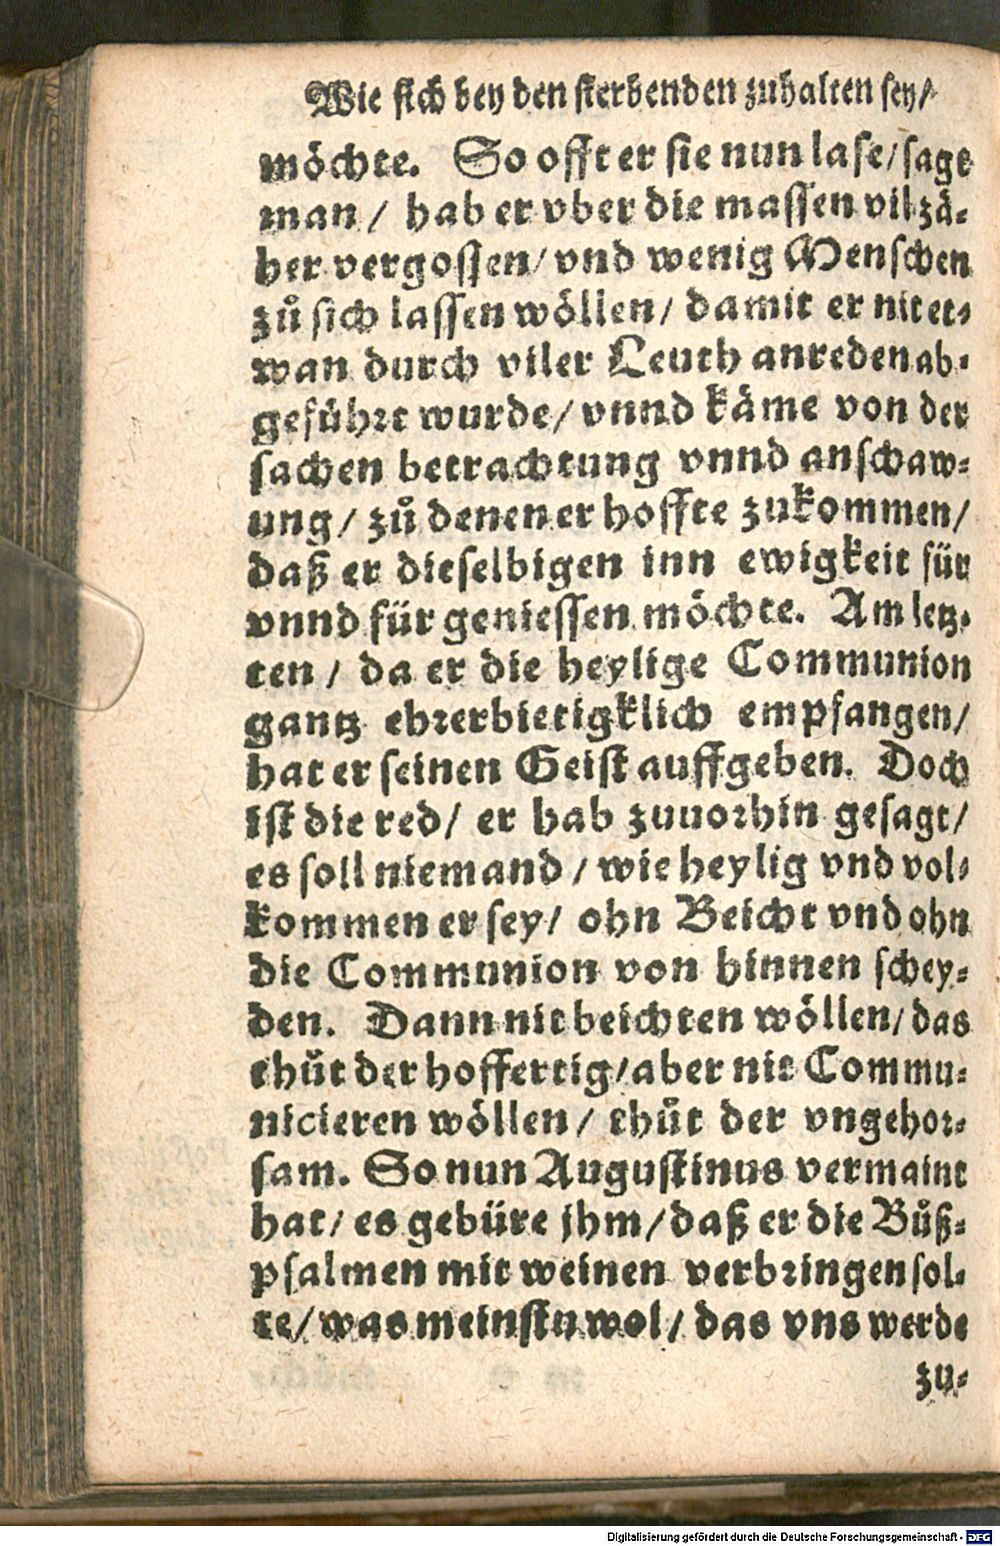 Wie sich bey den sterbenden zuhalten sey/
möchte. So offt er sie nun lase/sagt
man / hab er vber die massen vil zä-
her vergossen/ vnd wenig Menschen
zů sich lassen wöllen/ damit er nit et-
wan durch viler Leuth anreden ab-
geführt wurde/ vnnd käme von der
sachen betrachtung vnnd anschaw-
ung/ zů denen er hoffte zukommen/
daß er dieselbigen inn ewigkeit für
vnnd für geniessen möchte. Am letz-
ten / da er die heylige Communion
gantz ehrerbietigklich empfangen/
hat er seinen Geist auffgeben. Doch
ist die red/ er hab zuuorhin gesagt/
es soll niemand / wie heylig vnd vol-
kommen er sey/ ohn Beicht vnd ohn
die Communion von hinnen schey-
den. Dann nit beichten wöllen/ das
thůt der hoffertig/aber nit Commu-
nicieren wöllen/ thůt der vngehor-
sam. So nun Augustinus vermaint
hat/ es gebüre jhm/daß er die Bůß-
psalmen mit weinen verbringen sol-
te/ was meinstu wol/ das vns werde
zu-
Digitalisierung gefördert durch die Deutsche Forschungsgemeinschaft - DFG